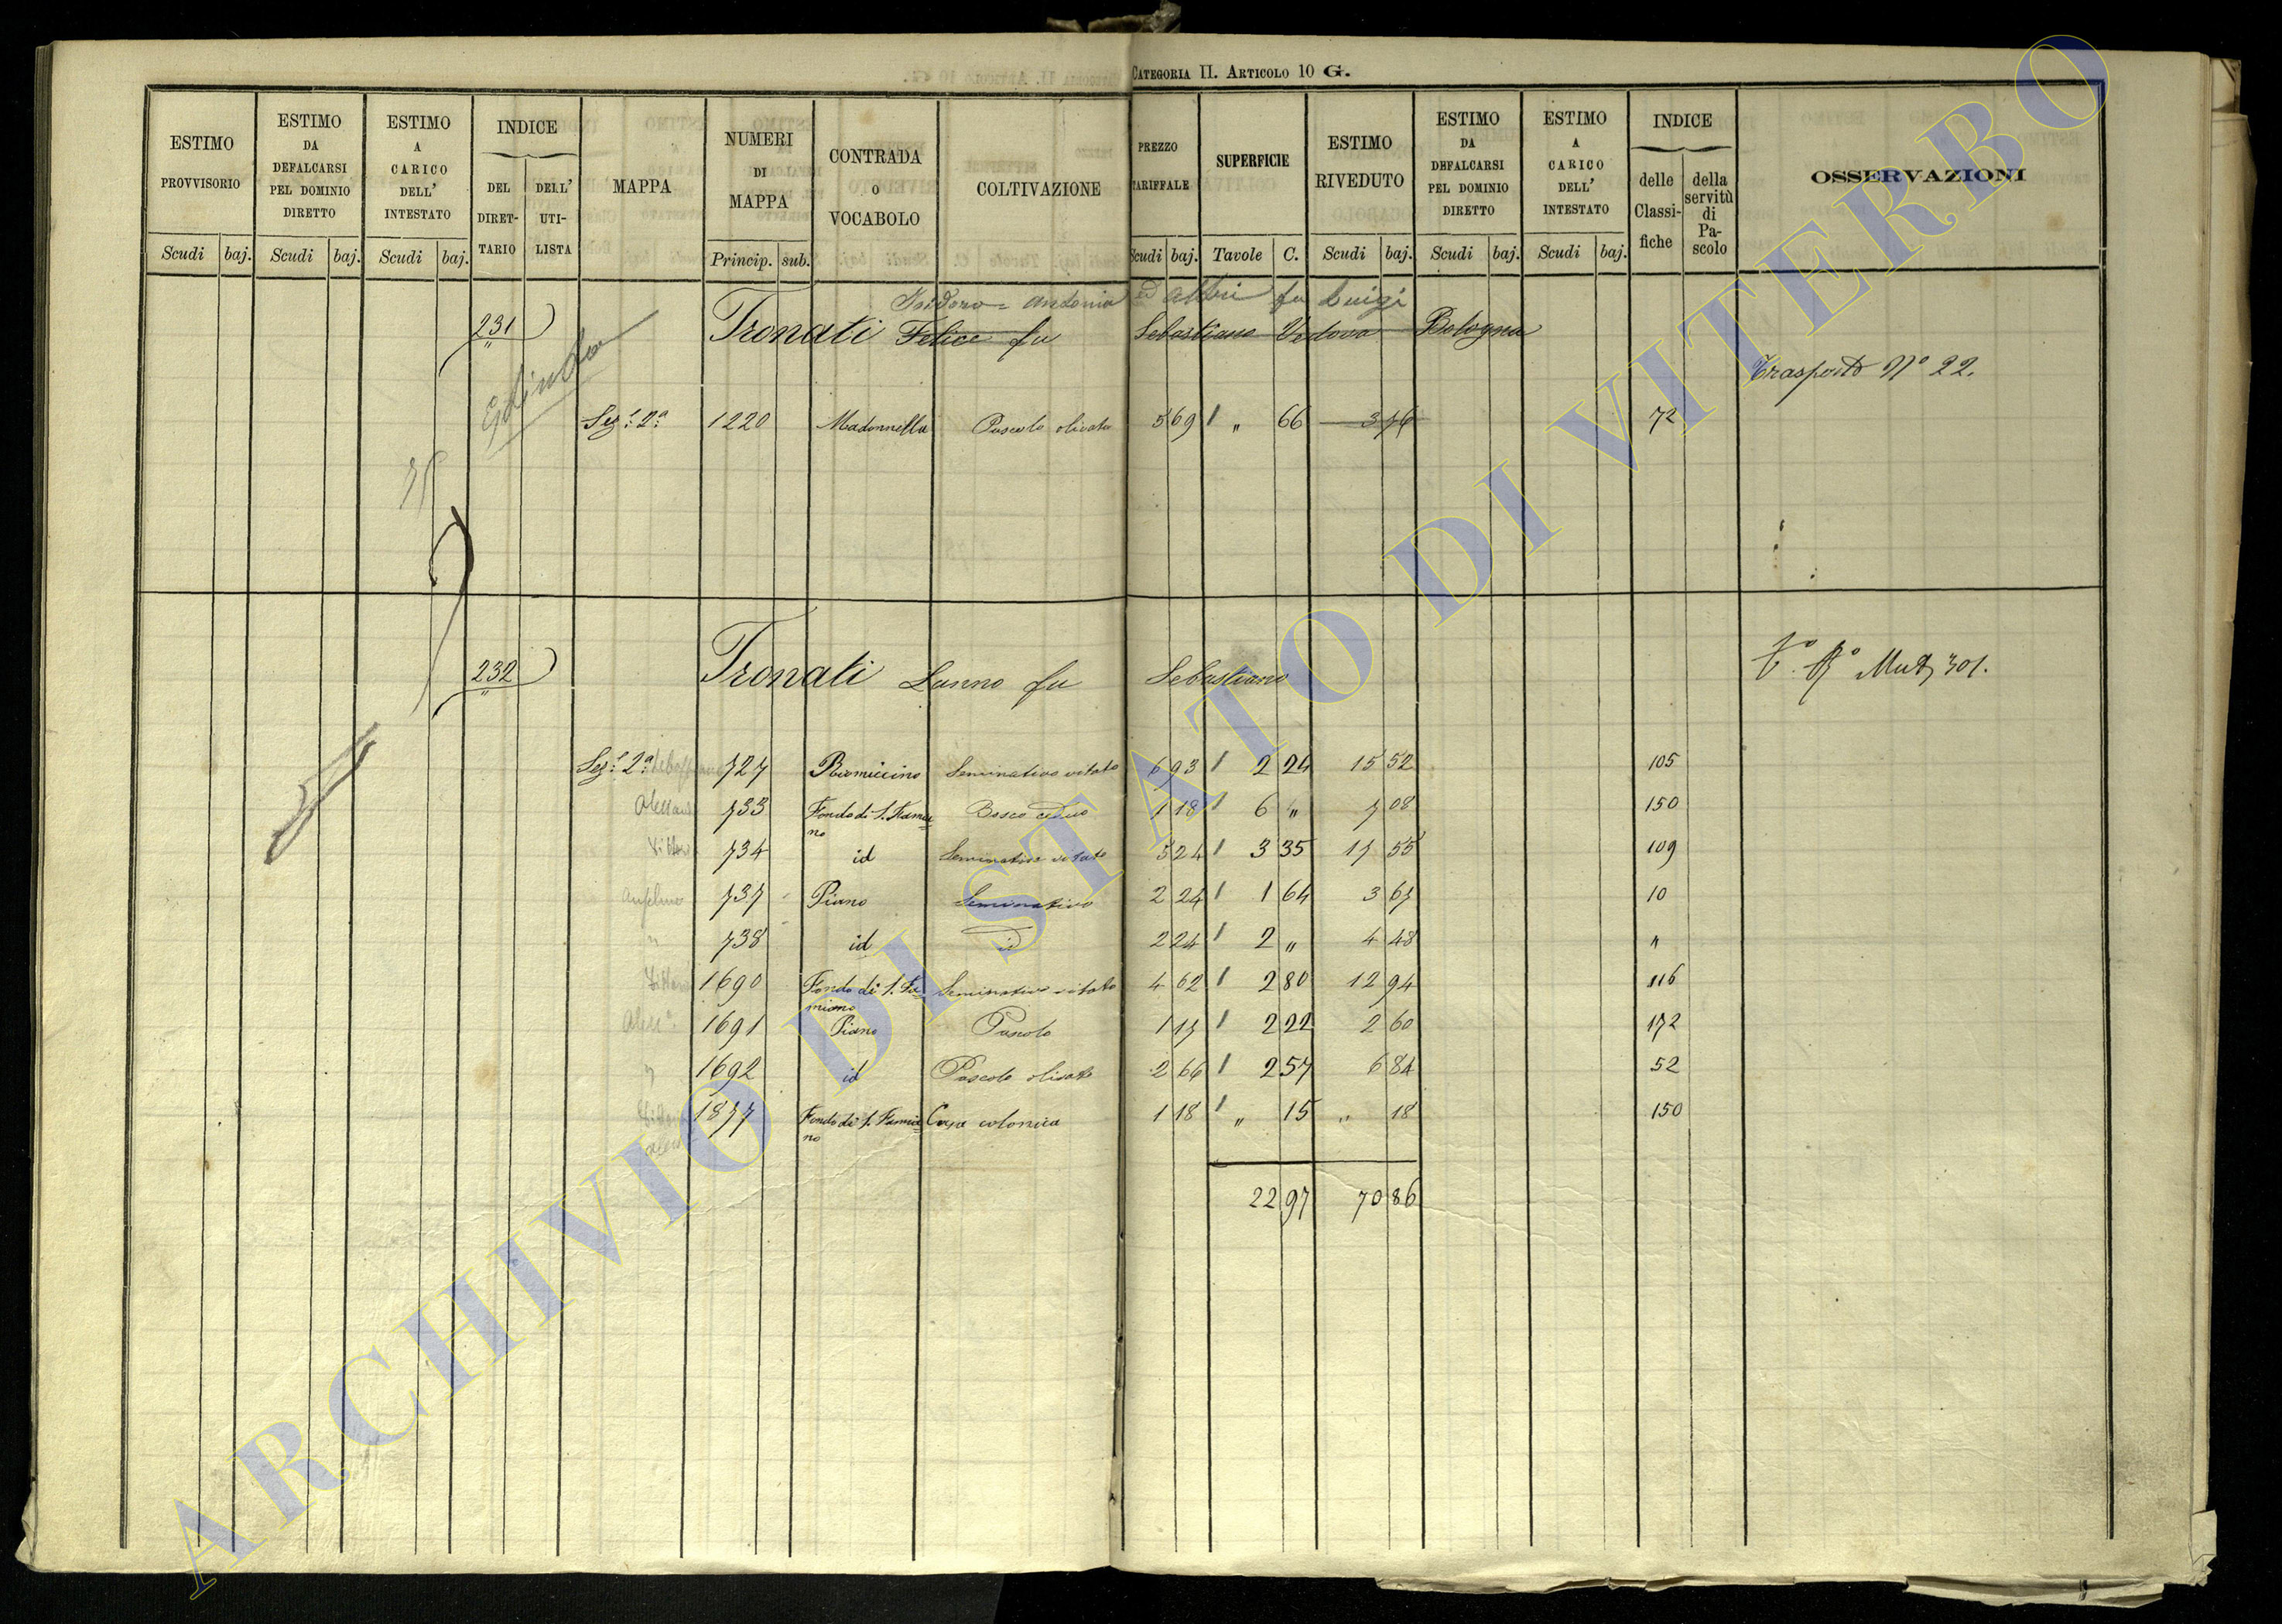 CATEGORIA II. ARTICOLO 10 G.
ESTIMO PROVVISORIO Scudi baj.
ESTIMO DA DEFALCARSI PEL DOMINIO DIRETTO Scudi baj.
ESTIMO A CARICO DELL' INTESTATO Scudi baj.
INDICE DEL DIRETTARIO DELL' UTILISTA
MAPPA
NUMERI DI MAPPA Princip. sub.
CONTRADA O VOCABOLO
COLTIVAZIONE
PREZZO TARIFFALE Scudi baj.
SUPERFICIE Tavole C.
ESTIMO RIVEDUTO Scudi baj.
ESTIMO DA DEFALCARSI PEL DOMINIO DIRETTO Scudi baj.
ESTIMO A CARICO DELL' INTESTATO Scudi baj.
INDICE delle Classifiche della servitù di Pascolo
OSSERVAZIONI
Isidoro = Antonia ed altri fu Luigi
231 Tronati Felice fu Sebastiano Vedova Bologna
Estinta
Trasporto N° 22.
Sez.e 2a 1220 Madonnella Pascolo olivato 5 69 " 66 3 76 72
232 Tronati Lanno fu Sebastiano
Mut 301.
Sez.e 2a 727 Seminativo vitato 6 93 2 24 15 52 105
733 Fondo di S. Famiano Bosco ceduo 1 18 6 " 7 08 150
734 id Seminativo vitato 5 24 3 35 17 55 109
Anselmo 737 Piano Seminativo 2 24 1 64 3 67 10
" 738 id id 2 24 2 " 4 48 "
1690 Fondo di S. Famiano Seminativo vitato 4 62 2 80 12 94 116
1691 Piano Pascolo 1 17 2 22 2 60 172
" 1692 id Pascolo olivato 2 66 2 57 6 84 52
1877 Fondo di S. Famiano Casa colonica 1 18 " 15 " 18 150
22 97 70 86
ARCHIVIO DI STATO DI VITERBO